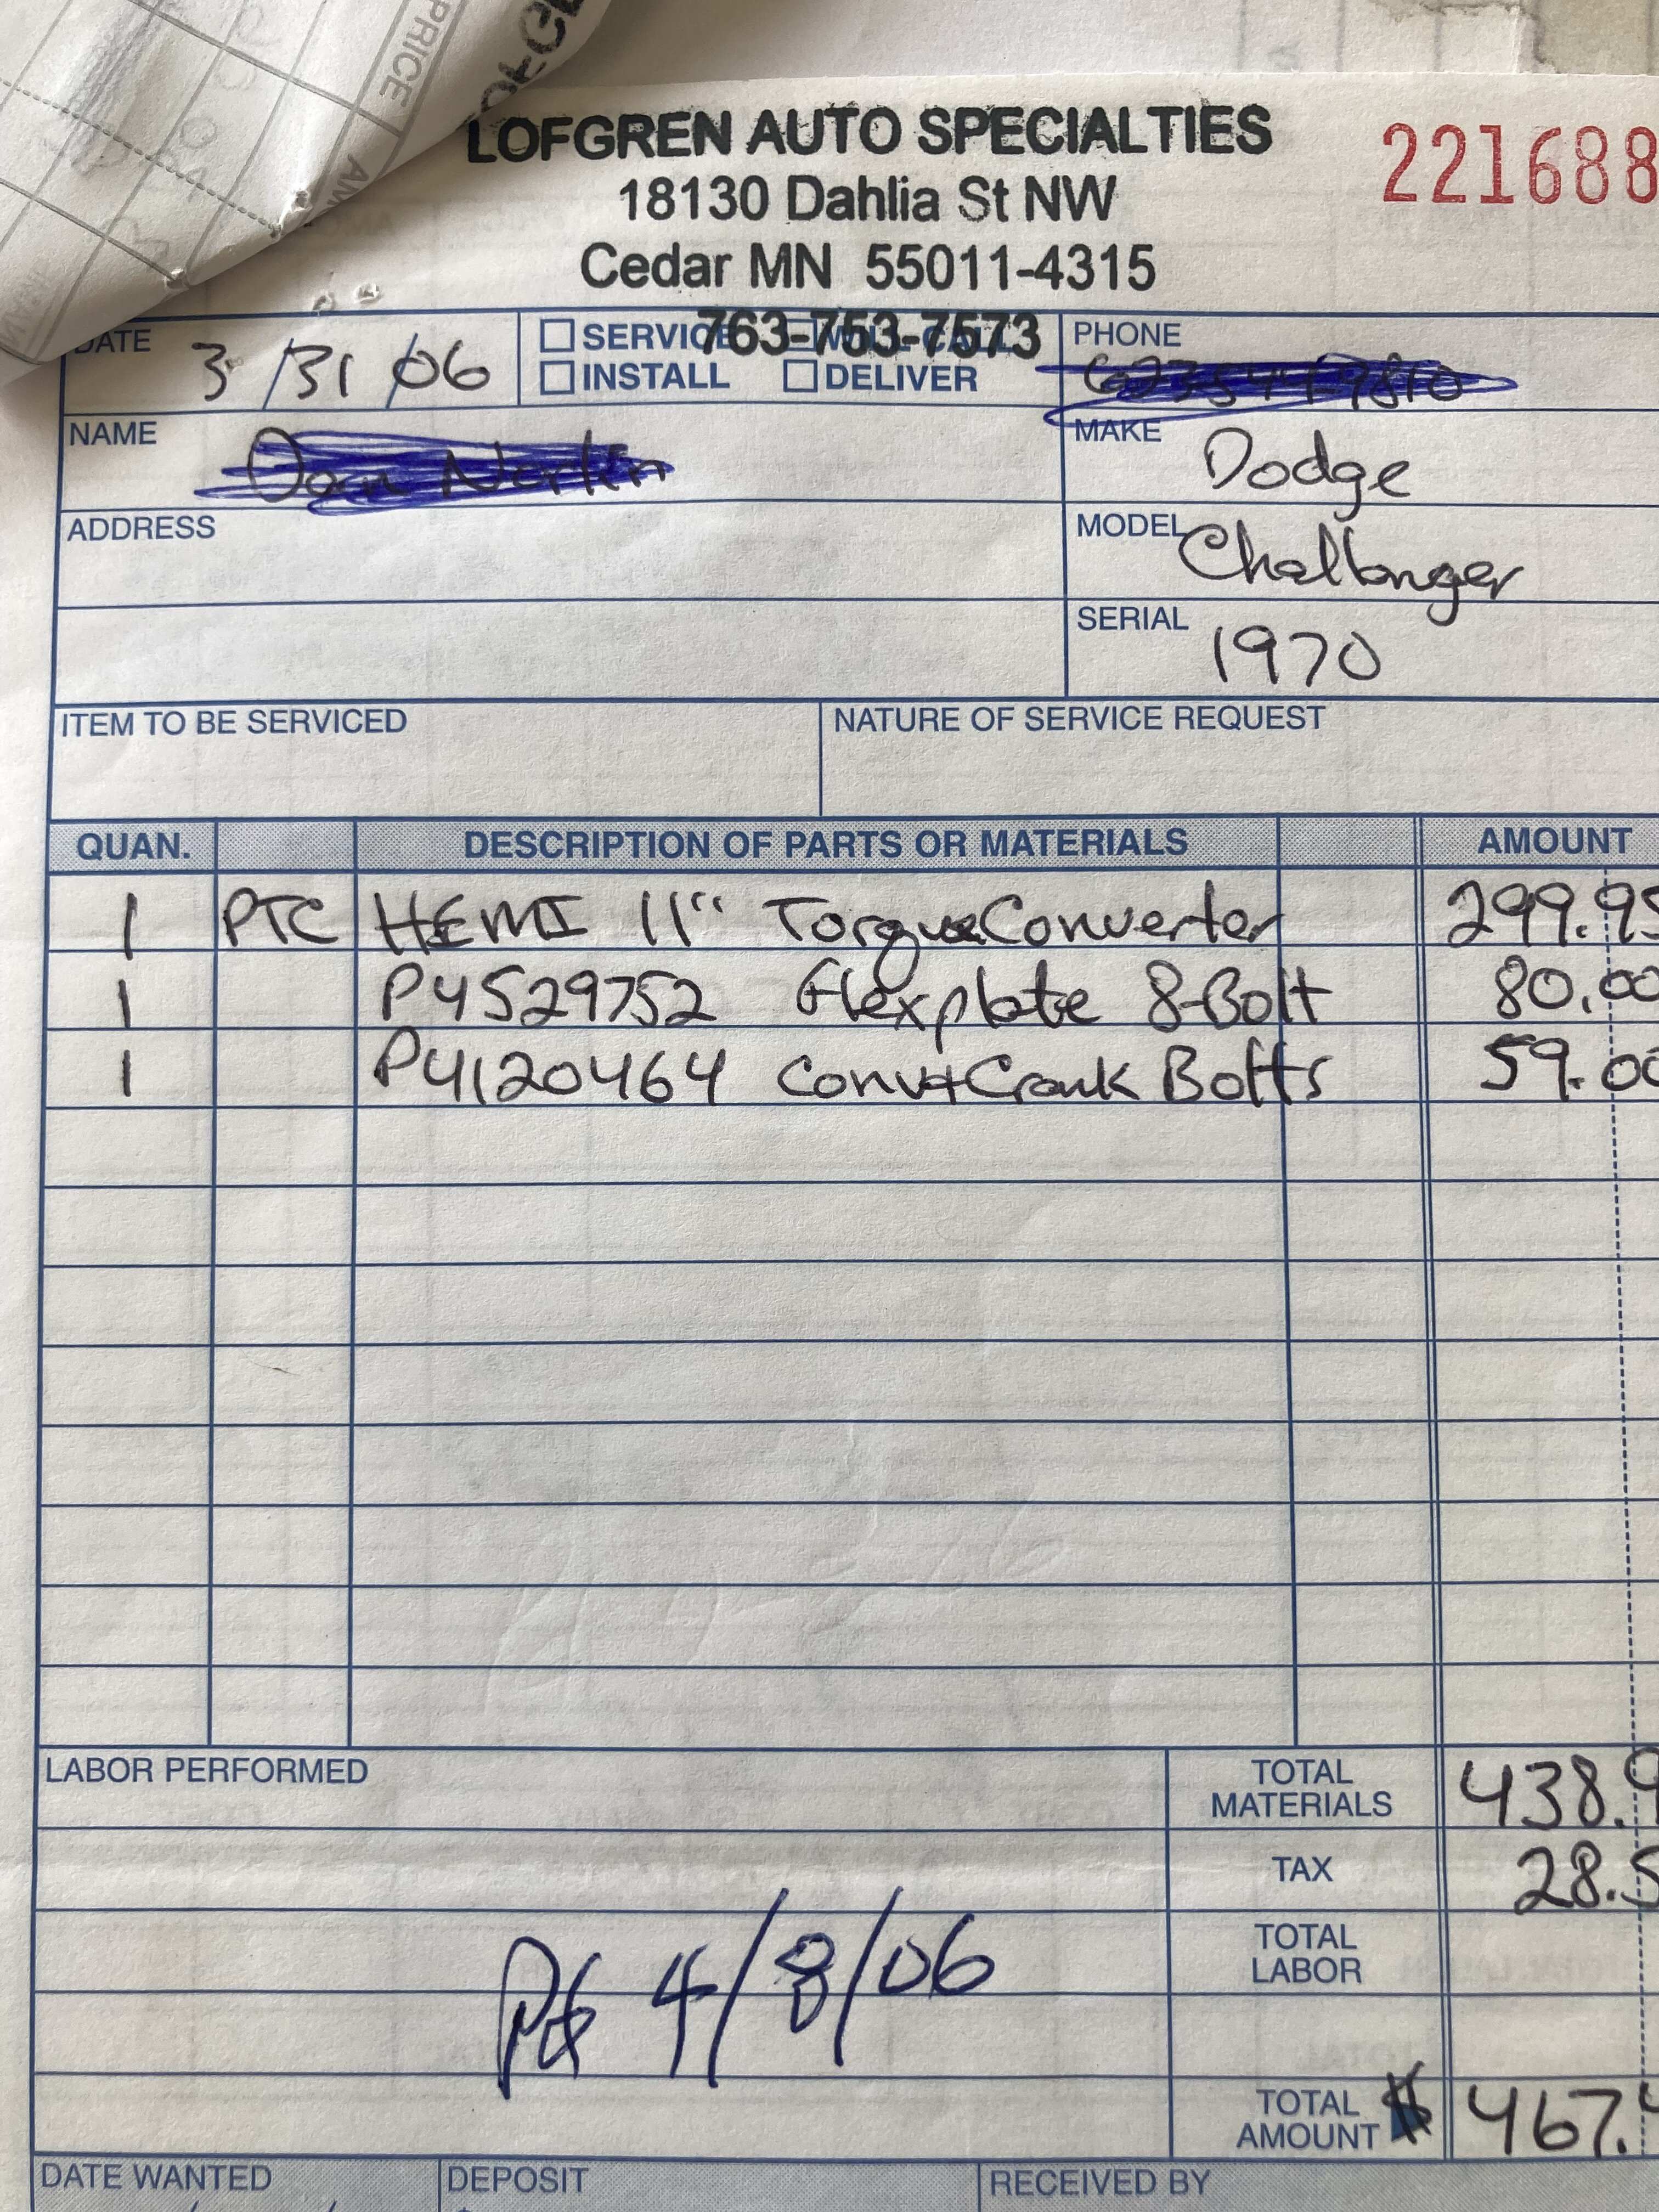 PRICE
LOFGREN AUTO SPECIALTIES
221688
18130 Dahlia St NW
Cedar MN 55011-4315
763-753-7573
DATE 3/31/06
SERVICE
INSTALL DELIVER
PHONE
NAME
MAKE Dodge
ADDRESS
MODEL Challenger
SERIAL 1970
ITEM TO BE SERVICED NATURE OF SERVICE REQUEST
QUAN. DESCRIPTION OF PARTS OR MATERIALS AMOUNT
1 PTC HEMI 11" Torque Converter 299.95
1 P4529752 Flexplate 8-Bolt 80.00
1 P4120464 Conv+Crank Bolts 59.00
LABOR PERFORMED
TOTAL MATERIALS 438.9
TAX 28.5
TOTAL LABOR
Pd 4/8/06
TOTAL AMOUNT $ 467.4
DATE WANTED DEPOSIT RECEIVED BY